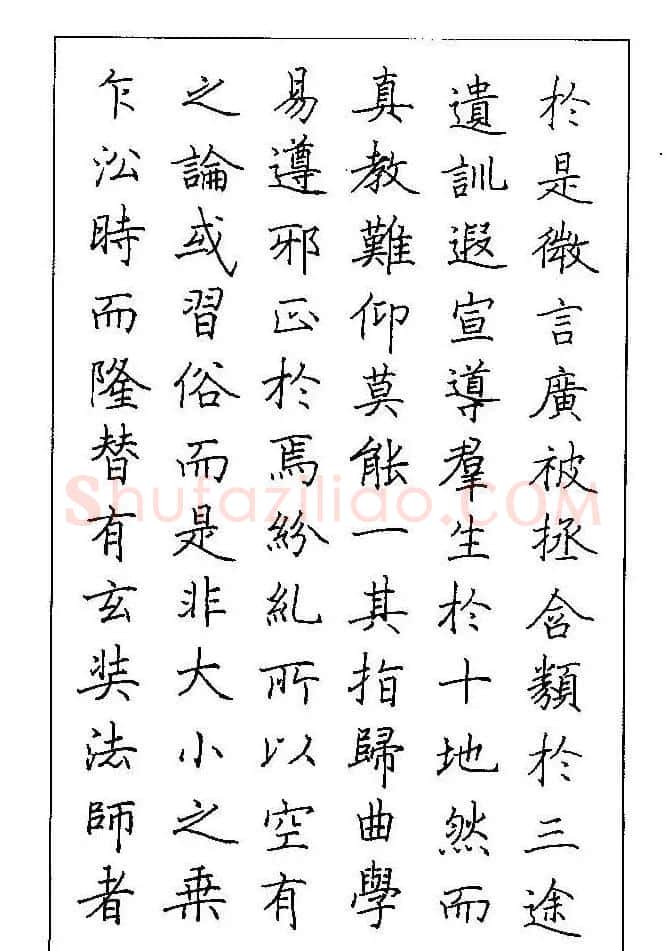 於是微言廣被拯含類於三途
遺訓遐宣導羣生於十地然而
真教難仰莫能一其指歸曲學
易遵邪正於焉紛糺所以空有
之論或習俗而是非大小之乗
乍沿時而隆替有玄奘法師者
Shufaziliao.COM